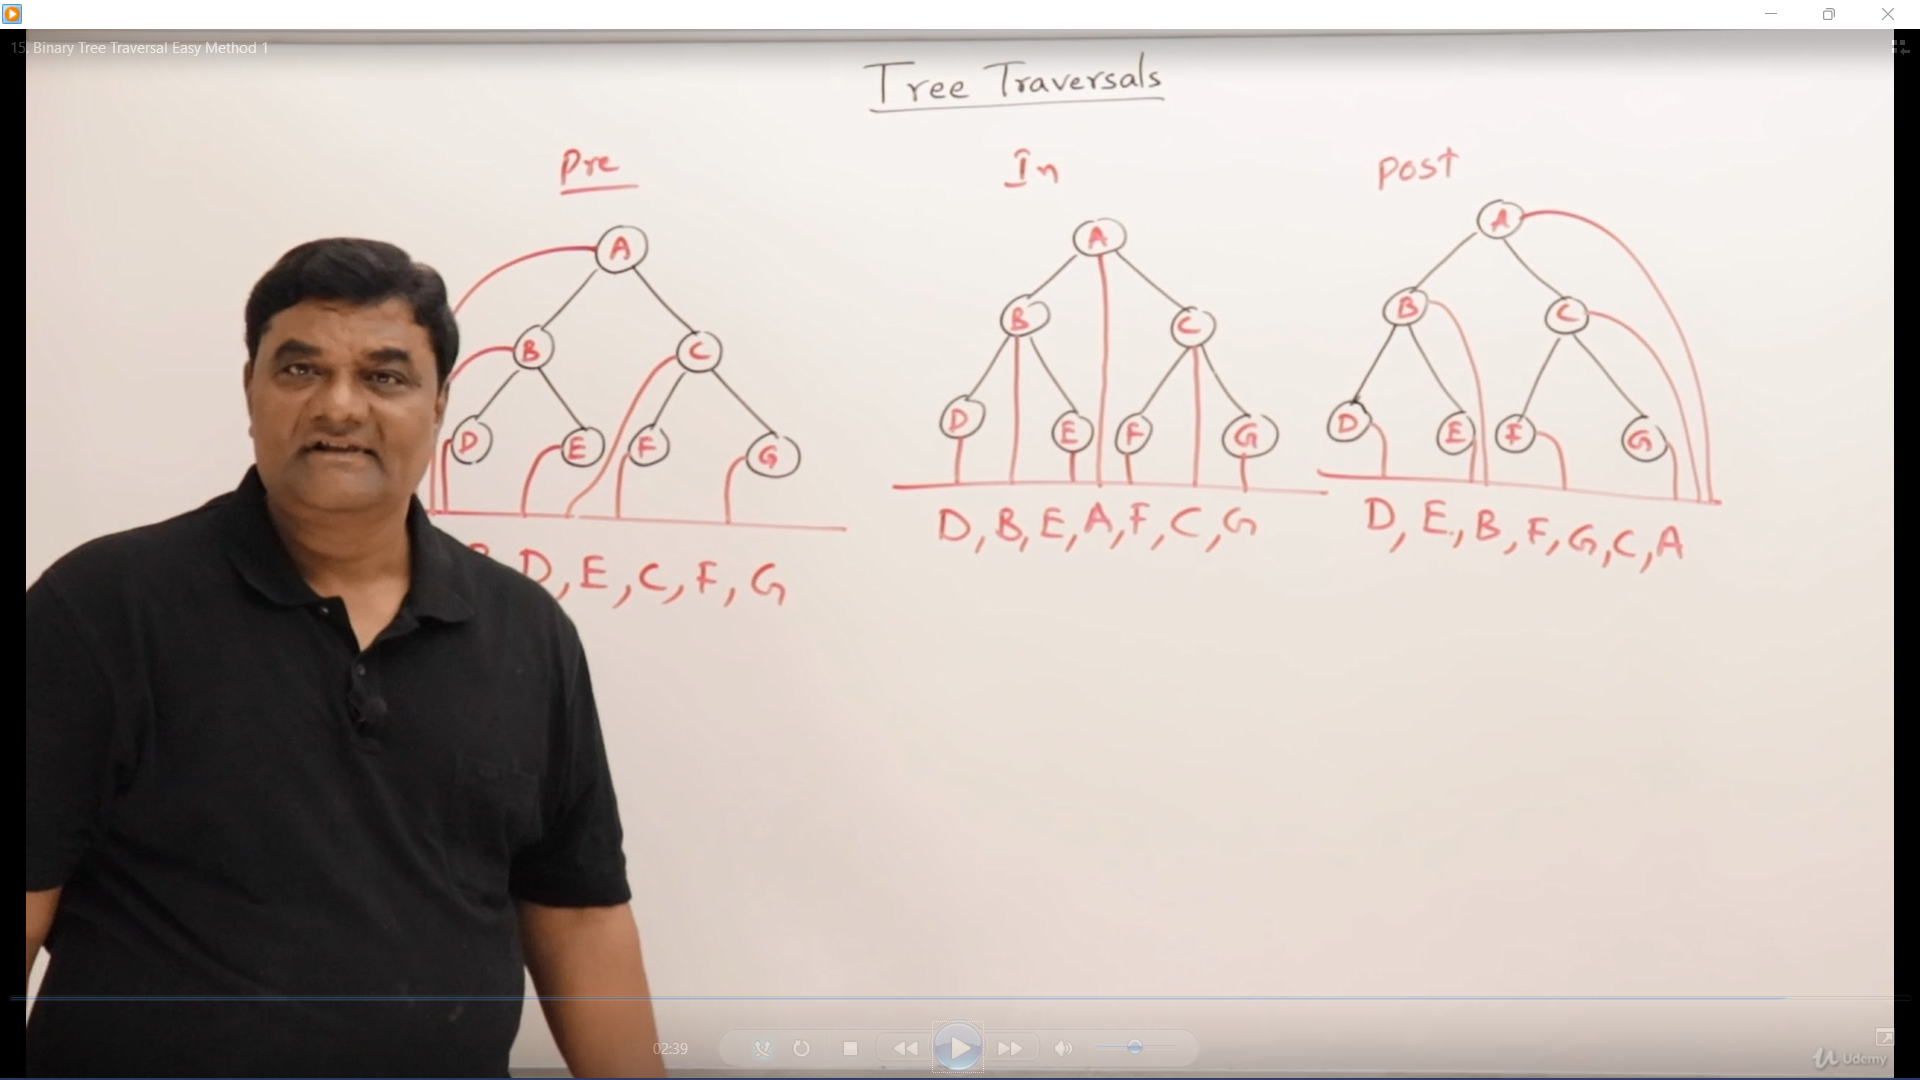 15. Binary Tree Traversal Easy Method 1
Tree Traversals
Pre
In
Post
A
B
C
D
E
F
G
D, E, C, F, G
A
B
C
D
E
F
G
D, B, E, A, F, C, G
A
B
C
D
E
F
G
D, E, B, F, G, C, A
02:39
Udemy